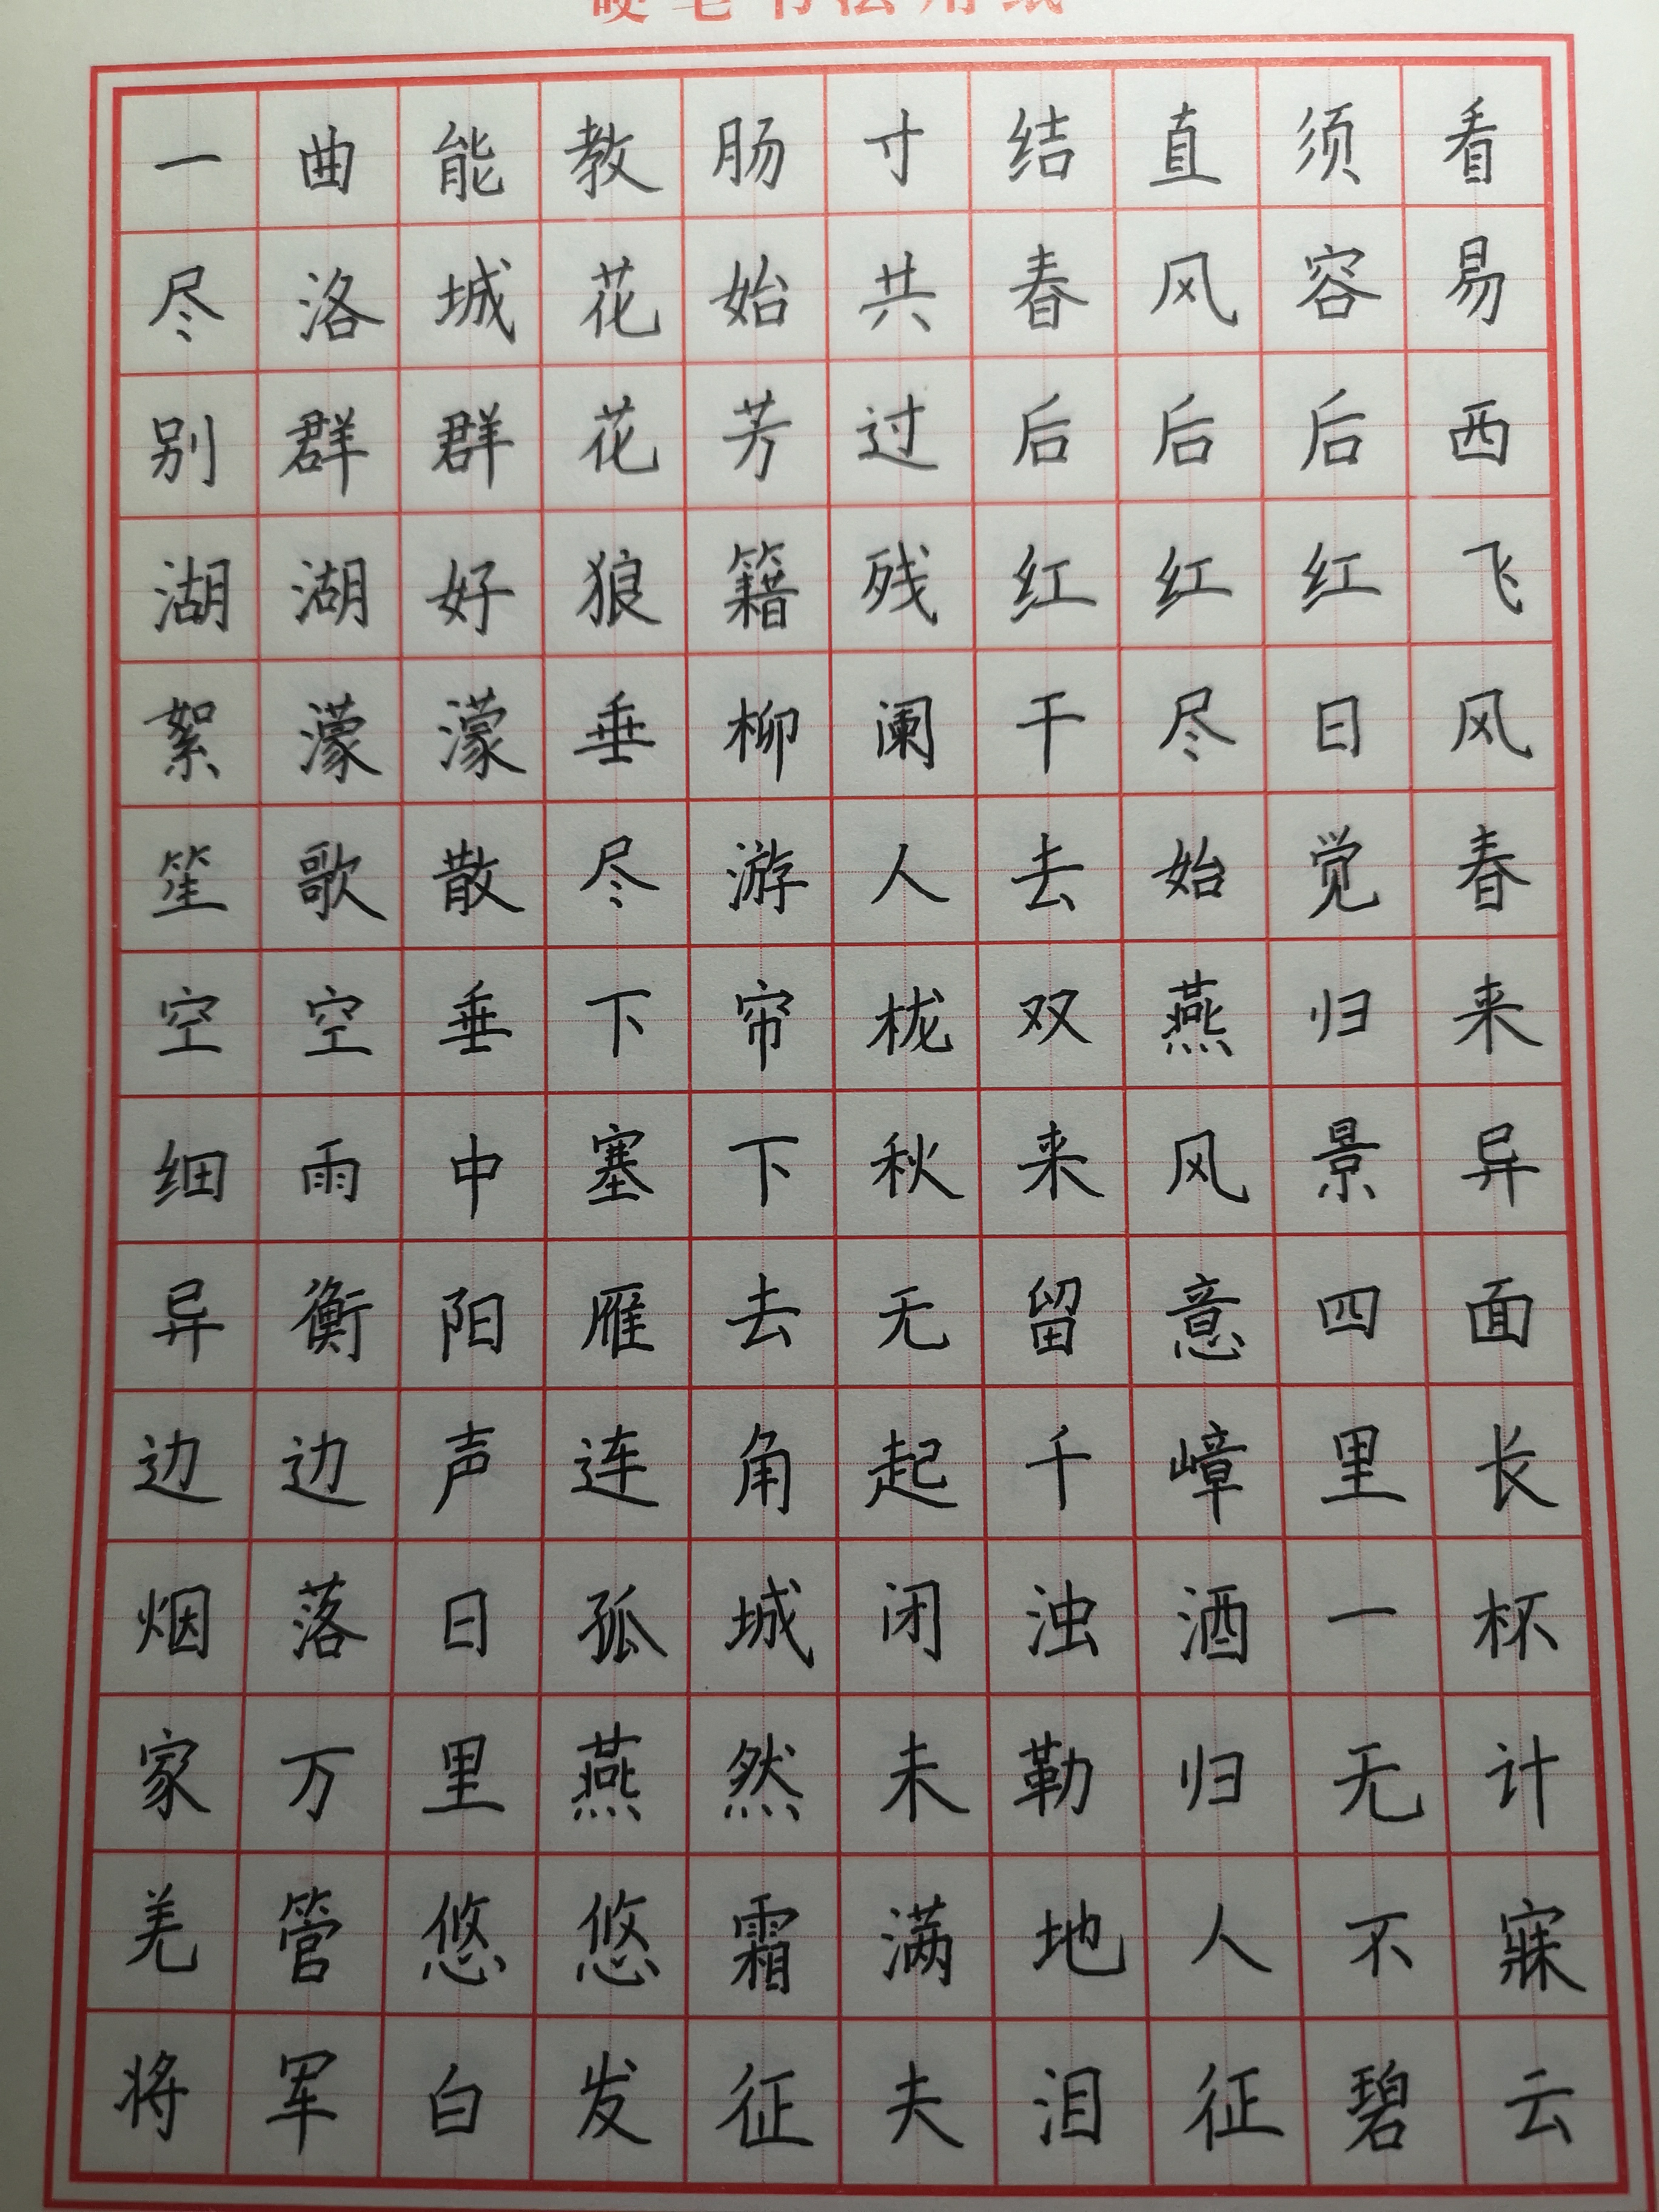 硬笔书法用纸
一曲能教肠寸结直须看
尽洛城花始共春风容易
别群群花芳过后后后西
湖湖好狼籍残红红红飞
絮濛濛垂柳阑干尽日风
笙歌散尽游人去始觉春
空空垂下帘栊双燕归来
细雨中塞下秋来风景异
异衡阳雁去无留意四面
边边声连角起千嶂里长
烟落日孤城闭浊酒一杯
家万里燕然未勒归无计
羌管悠悠霜满地人不寐
将军白发征夫泪征碧云